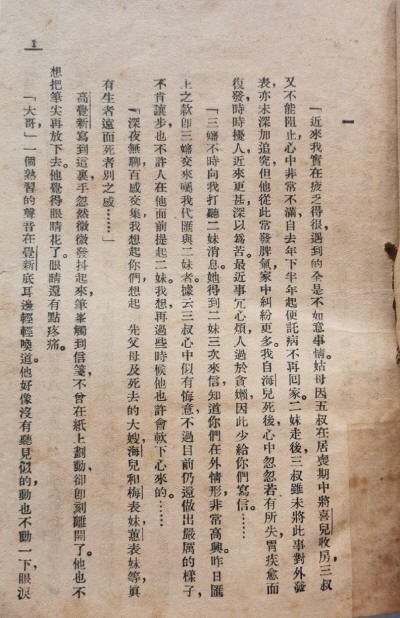 一
「近來我實在疲乏得很,遇到的全是不如意事情。姑母因五叔在居喪期中將喜兒收房,三叔
又不能阻止,心中非常不滿,自去年下半年起便託病不再回家。二妹走後,三叔雖未將此事對外發
表,亦未深加追究,但他從此常發脾氣,家中糾紛更多。我自海兒死後,心中忽忽若有所失,胃疾愈而
復發,時時擾人,近來更甚,深以爲苦。最近事冗心煩,人過於貪嬾,因此少給你們寫信……
「三嬸不時向我打聽二妹消息。她得到二妹三次來信,知道你們在外情形,非常高興。昨日匯
上之款卽三嬸交來囑我代匯與二妹者。據云三叔心中似有悔意,不過目前仍還做出嚴厲的樣子,
不肯讓步,也不許人在他面前提起二妹。我想再過些時候他也許會軟下心來的……
「深夜無聊,百感交集,我想起你們,想起　先父母及死去的大嫂,海兒和梅表妹,蕙表妹等,眞
有生者遠而死者別之感……」
高覺新寫到這裏,手忽然微微發抖起來,筆峯觸到信箋,不曾在紙上劃動,卻卽刻離開了。他也不
想把筆尖再放下去。他覺得眼睛花了。眼睛還有點疼痛。
「大哥,」一個熟習的聲音在覺新底耳邊輕輕喚道。他好像沒有聽見似的,動也不動一下,眼淚
1